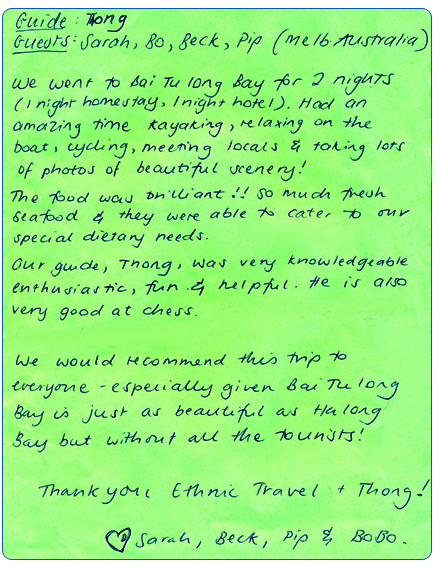 Guide: Thong
Guests: Sarah, Bo, Beck, Pip (Melb. Australia)
We went to Bai Tu long Bay for 2 nights
(1 night homestay, 1 night hotel). Had an
amazing time kayaking, relaxing on the
boat, cycling, meeting locals & taking lots
of photos of beautiful scenery!
The food was brilliant!! So much fresh
seafood & they were able to cater to our
special dietary needs.
Our guide, Thong, was very knowledgeable
enthusiastic, fun & helpful. He is also
very good at chess.
We would recommend this trip to
everyone - especially given Bai Tu long
Bay is just as beautiful as Ha long
Bay but without all the tourists!
Thank you, Ethnic Travel + Thong!
♡ Sarah, Beck, Pip & BoBo.